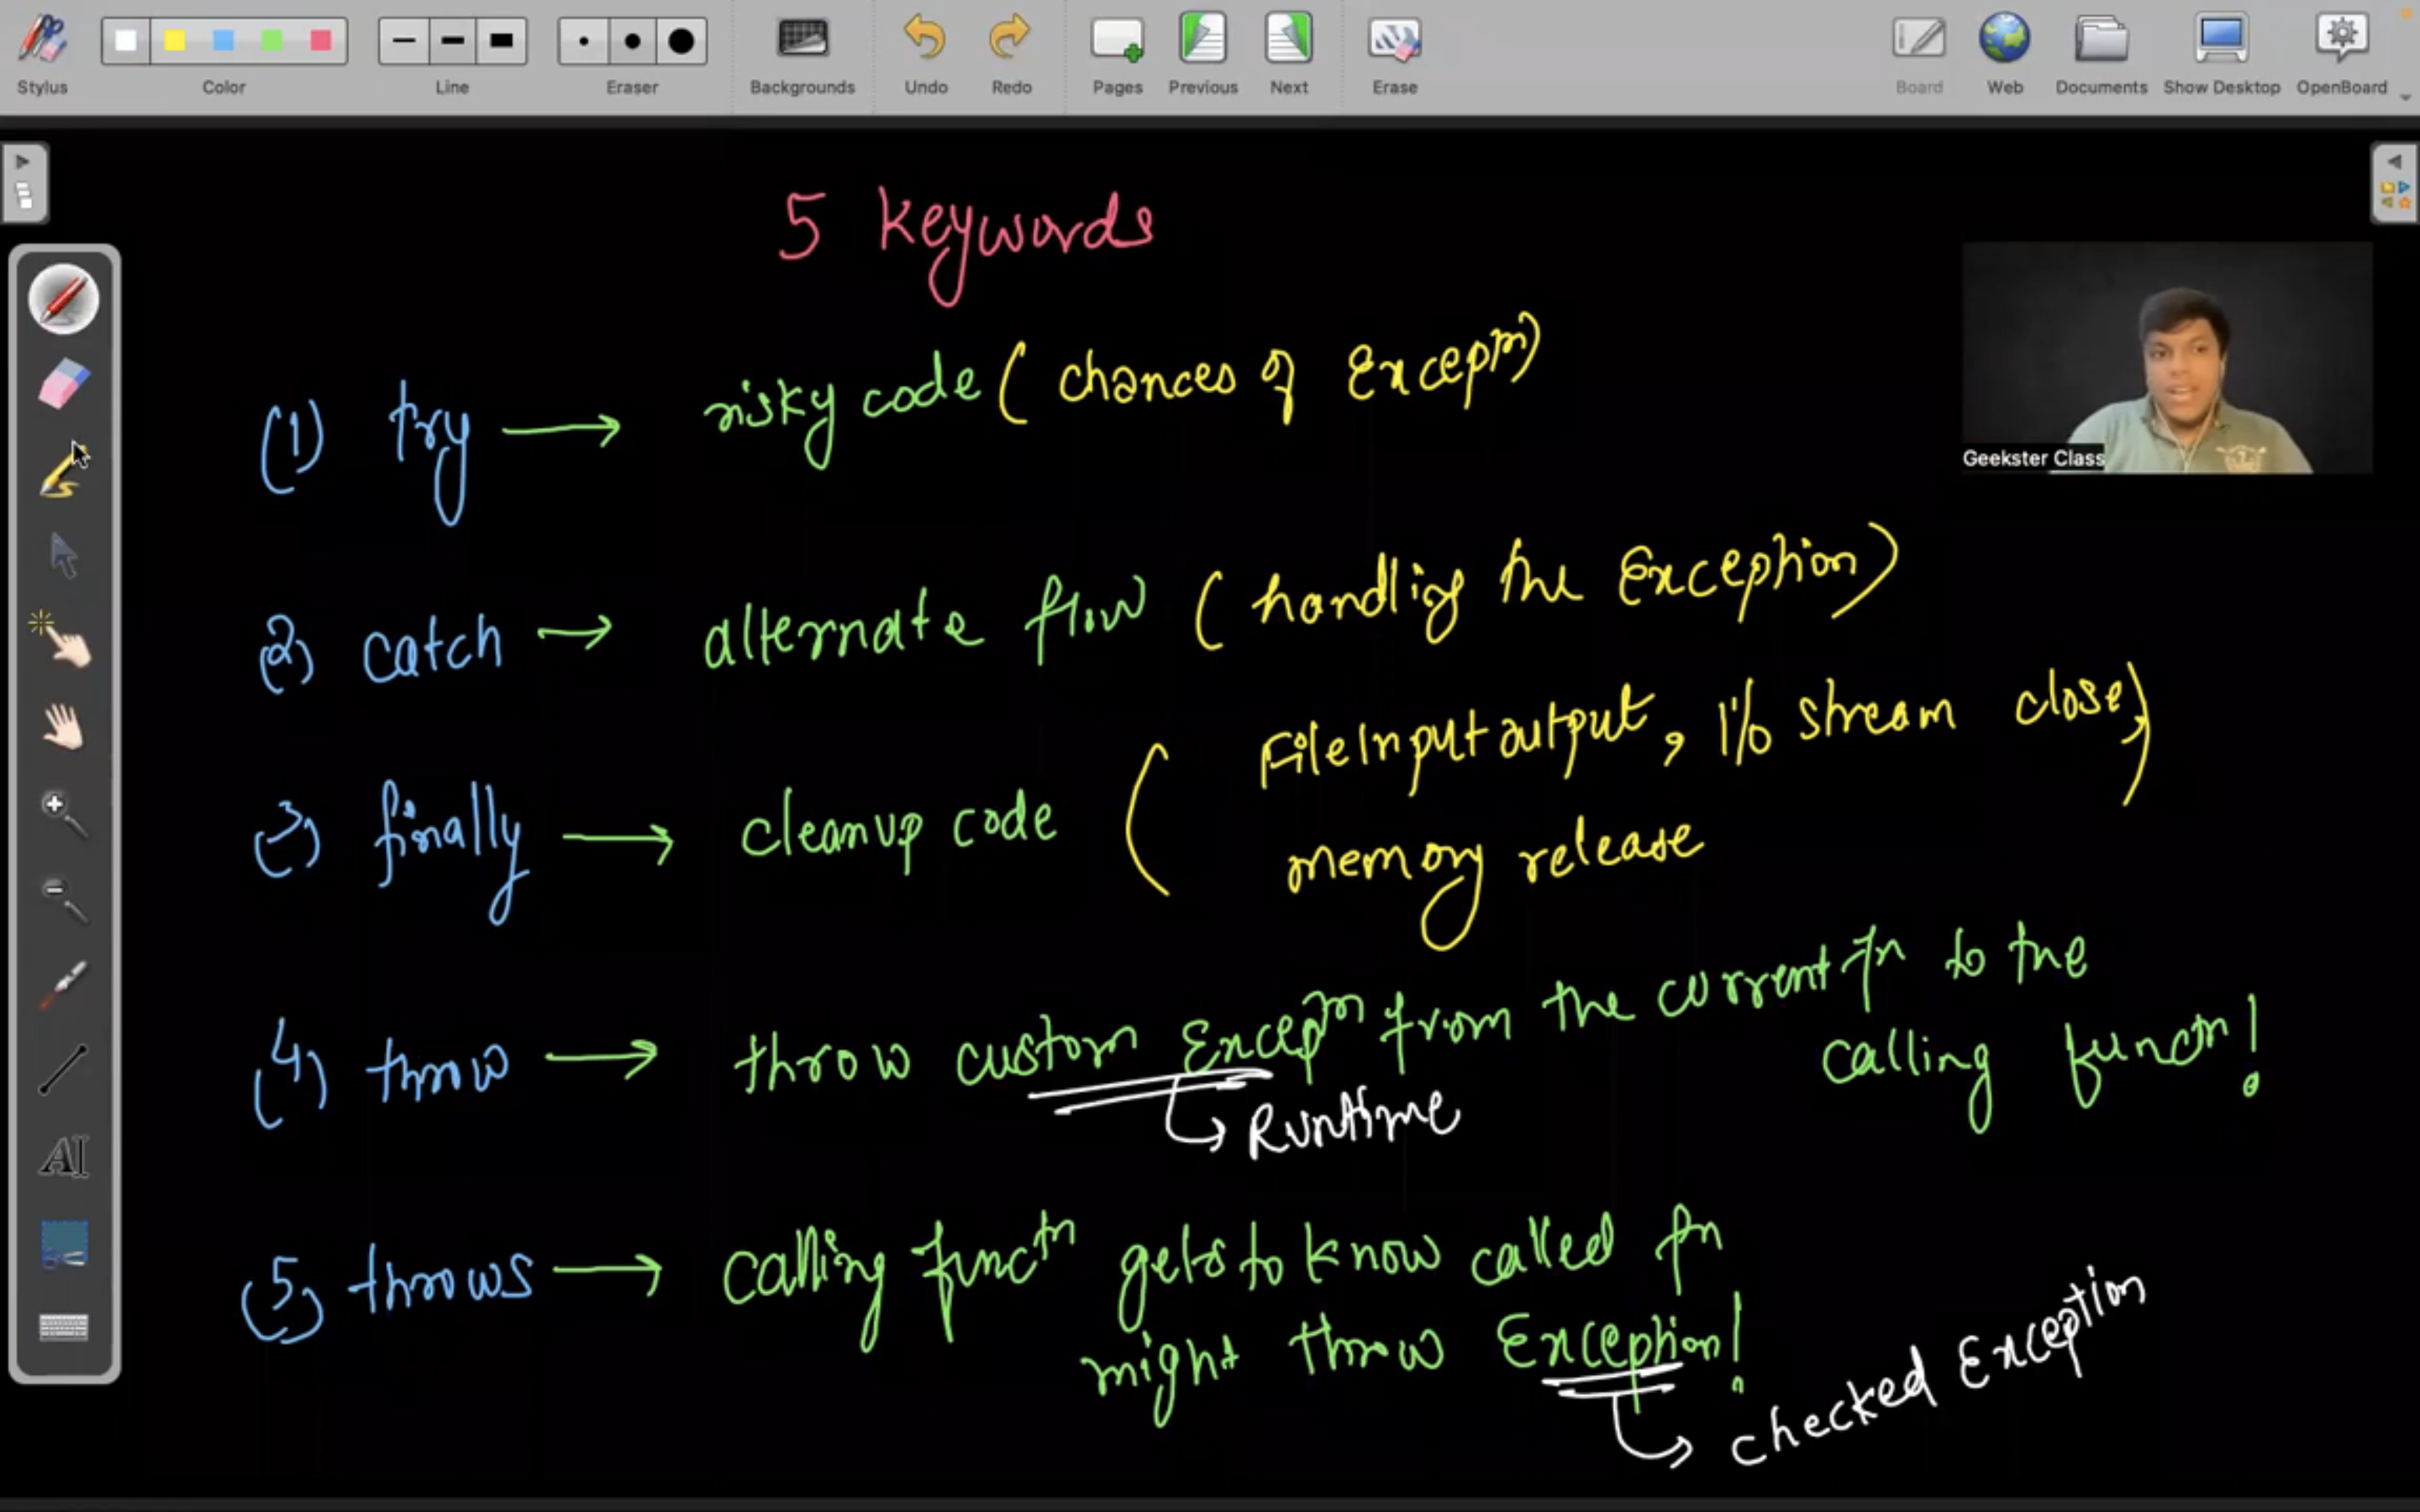 Stylus Color Line Eraser Backgrounds Undo Redo Pages Previous Next Erase Board Web Documents Show Desktop OpenBoard
5 keywords
(1) try → risky code ( chances of Excepⁿ)
Geekster Class
(2) catch → alternate flow ( handlig the Exception)
(3) finally → cleanup code ( FileInputoutput, I/o stream close,
memory release )
(4) throw → throw custom Excepᵗⁿ from the current fn to the
calling functⁿ!
↳ Runtime
(5) throws → calling functⁿ gets to know called fn
might throw Exception!
↳ checked Exception
AI